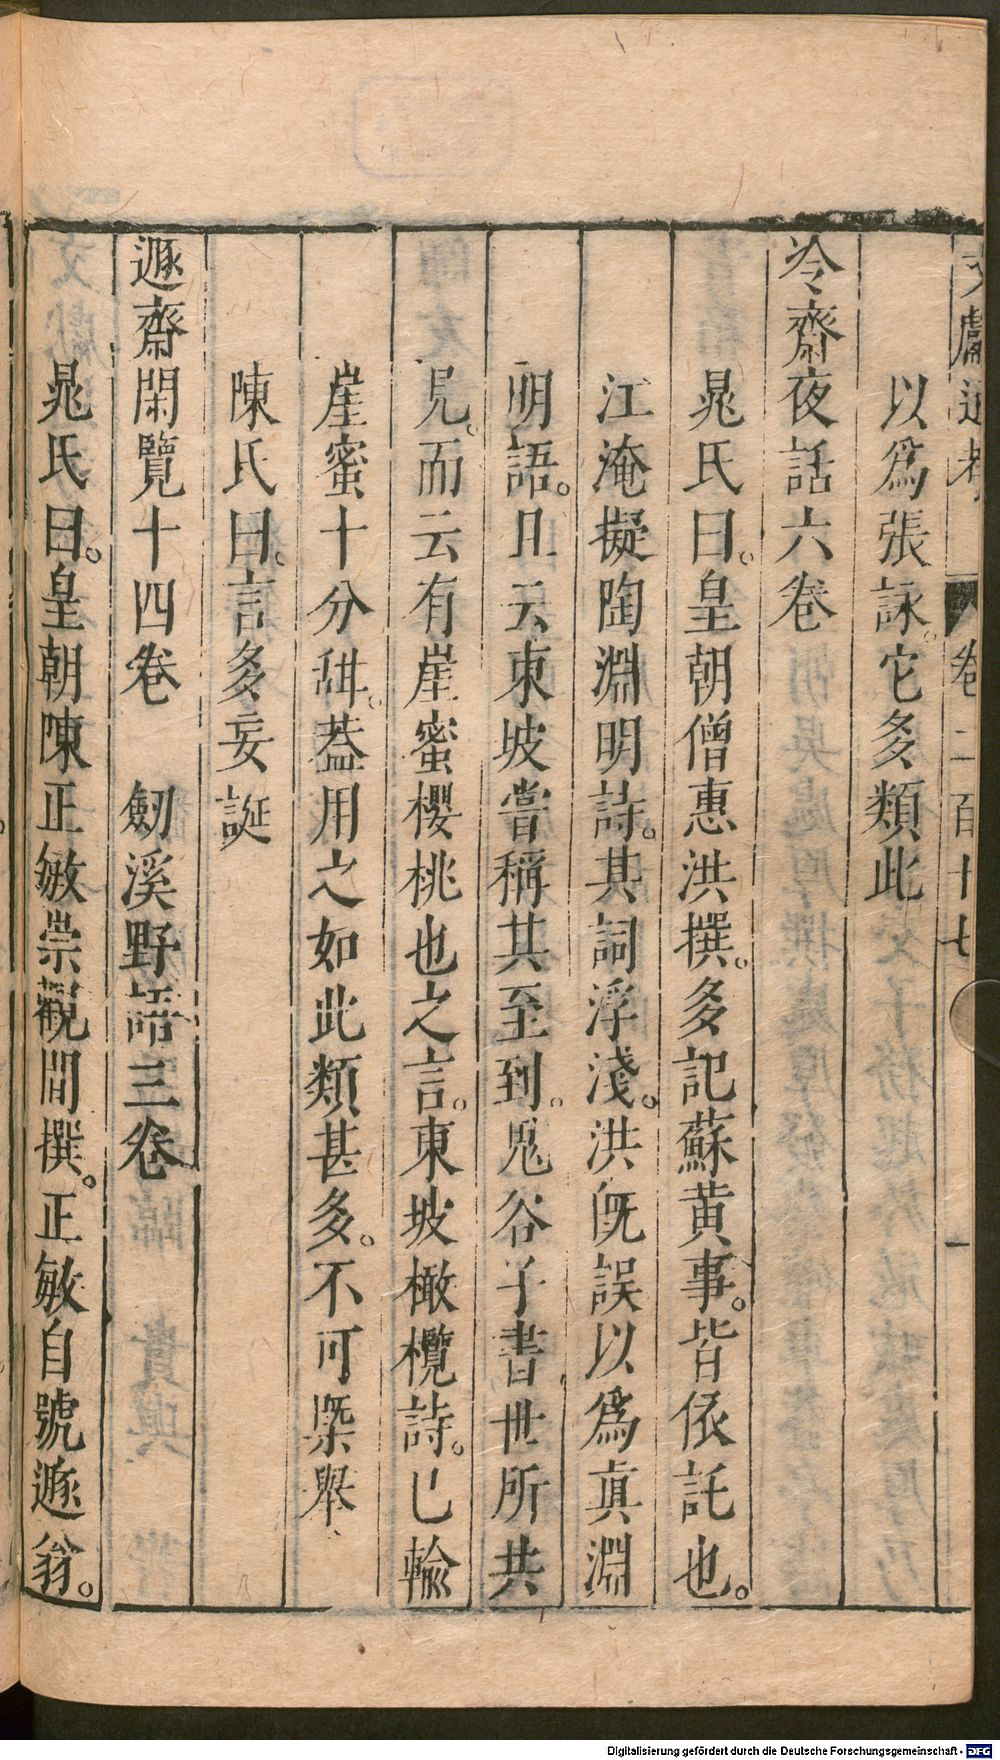 文獻通考 卷二百十七 一
以爲張詠。它多類此
冷齋夜話六卷
晁氏曰。皇朝僧惠洪撰。多記蘇黄事。皆依託也。
江淹擬陶淵明詩。其詞浮淺。洪旣誤以爲眞淵
明語。且云東坡嘗稱其至到。鬼谷子書世所共
見。而云有崖蜜櫻桃也之言。東坡橄欖詩。已輸
崖蜜十分甜。蓋用之如此類甚多。不可槩舉
陳氏曰。言多妄誕
遯齋閑覽十四卷 劒溪野語三卷
晁氏曰。皇朝陳正敏崇觀間撰。正敏自號遯翁。
Digitalisierung gefördert durch die Deutsche Forschungsgemeinschaft - DFG